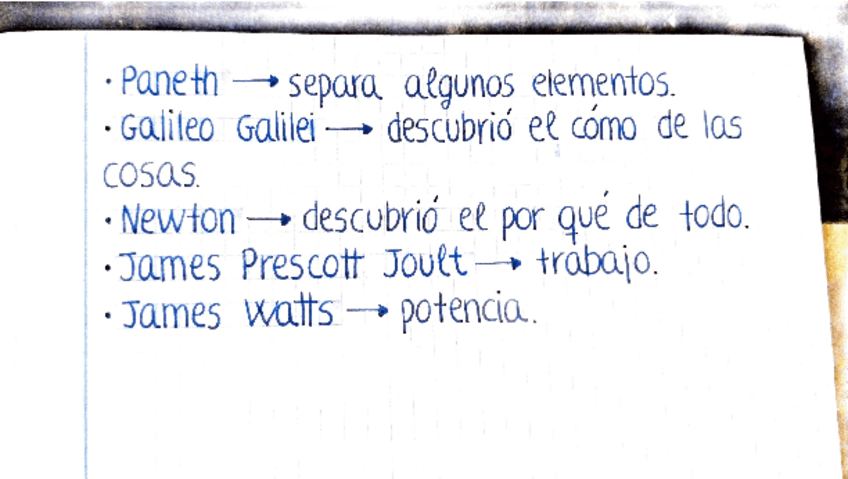 · Paneth → separa algunos elementos.
· Galileo Galilei → descubrió el cómo de las
cosas.
· Newton → descubrió el por qué de todo.
· James Prescott Joult → trabajo.
· James Watts → potencia.